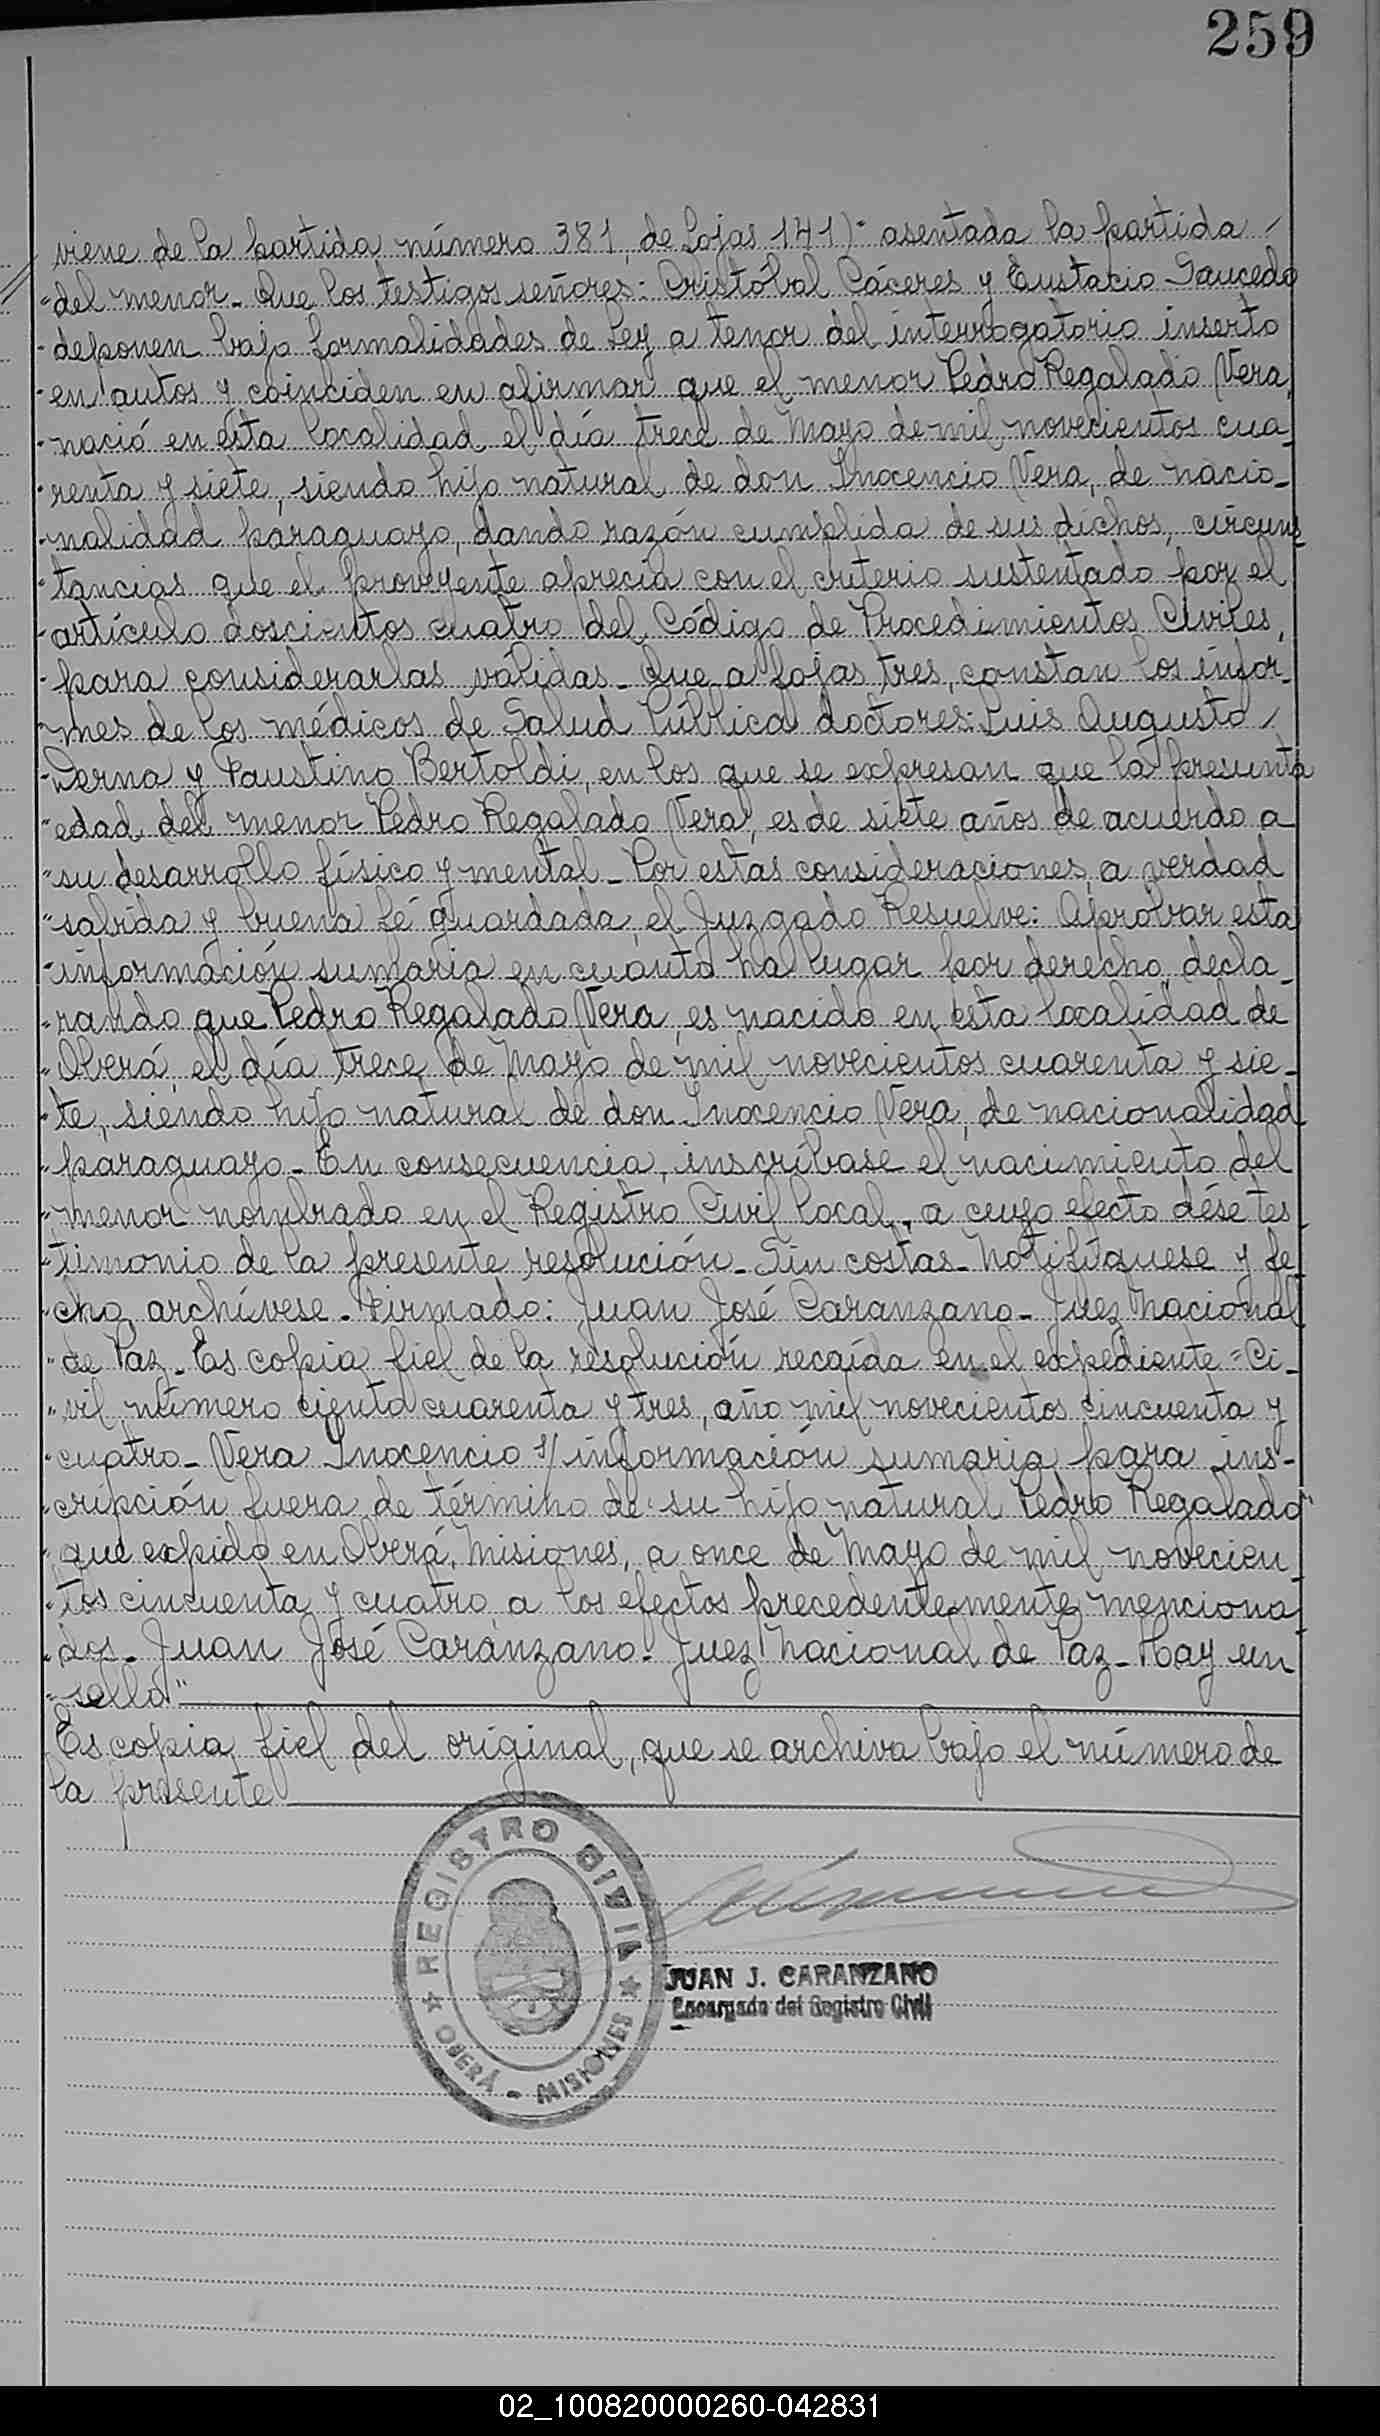 259
viene de la partida número 381, de fojas 141)" asentada la partida /
"del menor_ Que los testigos señores: Cristóbal Cáceres y Eustacio Saucedo
"deponen bajo formalidades de Ley a tenor del interrogatorio inserto
"en autos y coinciden en afirmar que el menor Pedro Regalado Vera,
"nació en ésta localidad el día trece de Mayo de mil novecientos cua_
"renta y siete, siendo hijo natural de don Inocencio Vera, de nacio_
"nalidad paraguayo, dando razón cumplida de sus dichos, circuns_
"tancias que el proveyente aprecia con el criterio sustentado por el
"artículo doscientos cuatro del Código de Procedimientos Civiles,
"para considerarlas válidas_ Que a fojas tres, constan los infor_
"mes de los médicos de Salud Pública doctores: Luis Augusto /
"Derna y Faustino Bertoldi, en los que se expresan que la presunta
"edad del menor Pedro Regalado Vera, es de siete años de acuerdo a
"su desarrollo físico y mental_ Por estas consideraciones, a verdad
"sabida y buena fé guardada, el Juzgado Resuelve: Aprobar esta
"información sumaria en cuanto ha lugar por derecho, decla_
"rando que Pedro Regalado Vera, es nacido en esta localidad de
"Oberá, el día trece de Mayo de mil novecientos cuarenta y sie_
"te, siendo hijo natural de don Inocencio Vera, de nacionalidad
"paraguayo_ En consecuencia, inscríbase el nacimiento del
"menor nombrado en el Registro Civil local, a cuyo efecto dése tes_
"timonio de la presente resolución_ Sin costas_ Notifíquese y fe_
"cho, archívese_ Firmado: Juan José Caranzano_ Juez Nacional
"de Paz_ Es copia fiel de la resolución recaída en el expediente = Ci_
"vil, número ciento cuarenta y tres, año mil novecientos cincuenta y
"cuatro_ Vera Inocencio s/ información sumaria para ins-
"cripción fuera de término de su hijo natural Pedro Regalado"
"que expido en Oberá, Misiones, a once de Mayo de mil novecien_
"tos cincuenta y cuatro, a los efectos precedentemente menciona_
"dos_ Juan José Caranzano_ Juez Nacional de Paz_ Hay un
"sello"
Es copia fiel del original, que se archiva bajo el número de
la presente
REGISTRO CIVIL
OBERÁ - MISIONES
JUAN J. CARANZANO
Encargado del Registro Civil
02_100820000260-042831